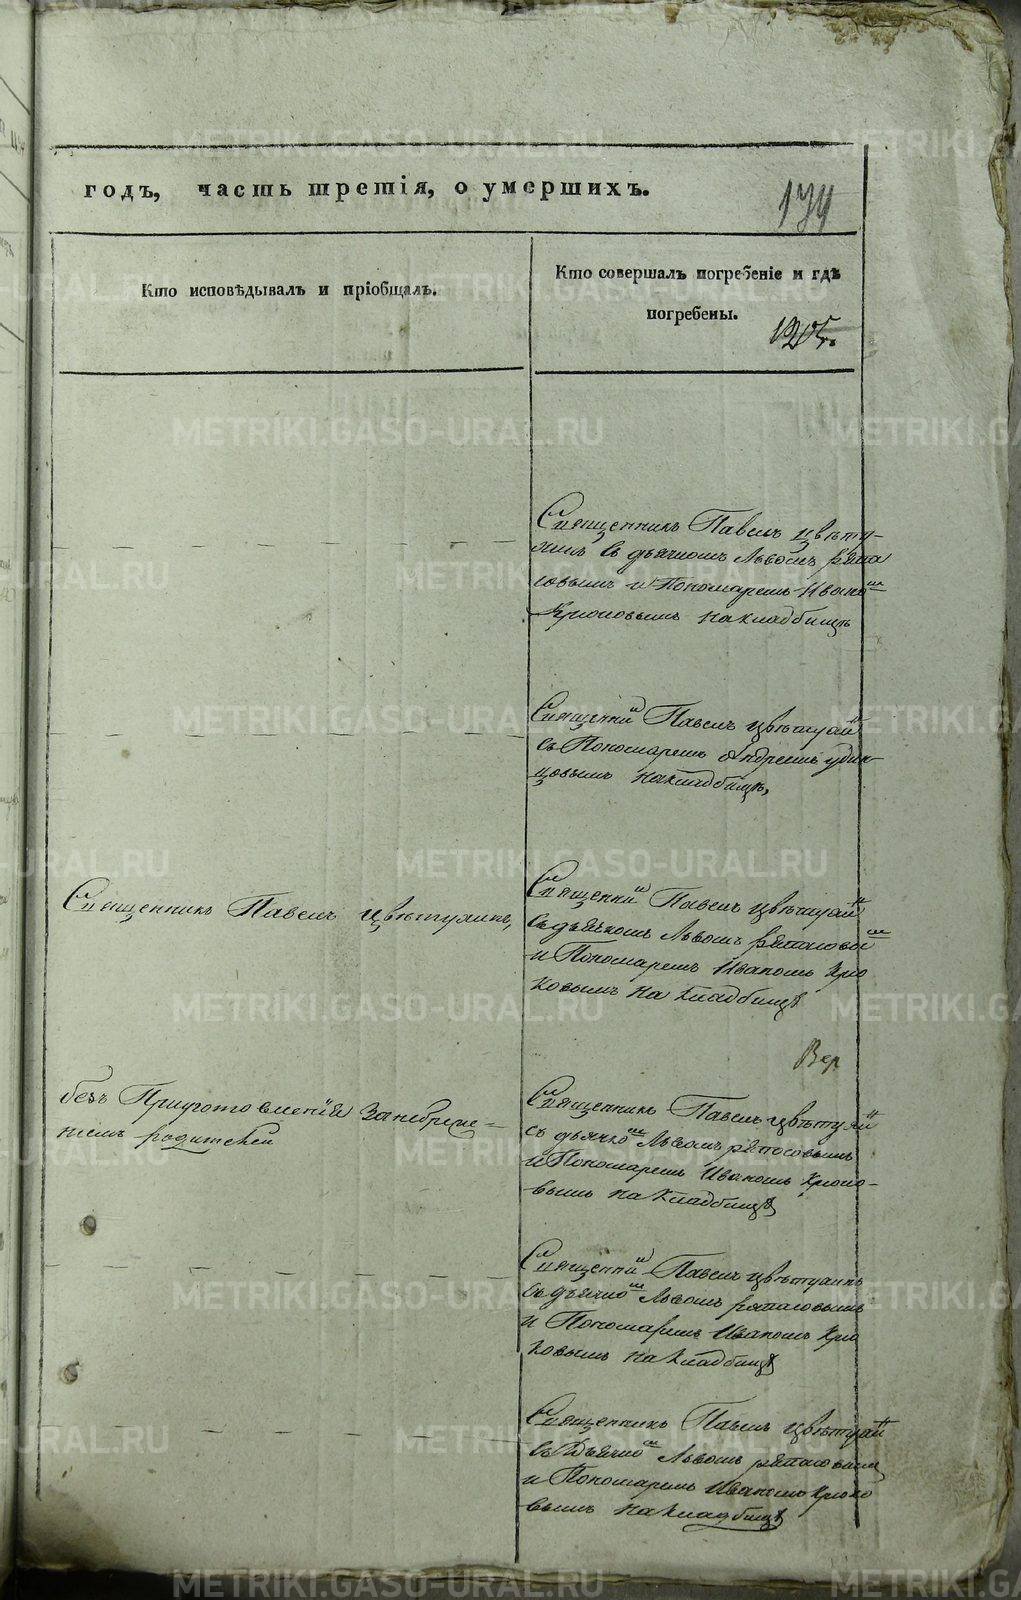 годъ, часть третія, о умершихъ.
174
Кто исповѣдывалъ и пріобщалъ.
Кто совершалъ погребеніе и гдѣ
погребены.
Священникъ Павелъ Цвѣту-
хинъ съ дьячкомъ Львомъ Ряпа
совымъ и Пономаремъ Ивано м
Крюковымъ на кладбищѣ
Священни к Павелъ Цвѣтухи н
съ Пономаремъ Андреемъ Удин-
цовымъ на кладбищѣ,
Священникъ Павелъ Цвѣтухинъ,
Священни к Павелъ Цвѣтухи н
съ дьячкомъ Львомъ Ряпасовы м
и Пономаремъ Иваномъ Крю
ковымъ на кладбищѣ
Вер
безъ Приуготовленія Занебреже-
ніемъ родителей
Священникъ Павелъ Цвѣтухи н
съ дьячко м Львомъ Ряпосовымъ
и Пономаремъ Иваномъ Крюко-
вымъ на кладбищѣ
Священни к Павелъ Цвѣтухинъ
съ дьячко м Львомъ Ряпасовымъ
и Пономаремъ Иваномъ Крю
ковымъ на кладбищѣ
Священникъ Павелъ Цвѣтухи н
съ Дьячко м Львомъ Ряпасовымъ
и Пономаремъ Иваномъ Крюко
вымъ на кладбищѣ
METRIKI.GASO-URAL.RU